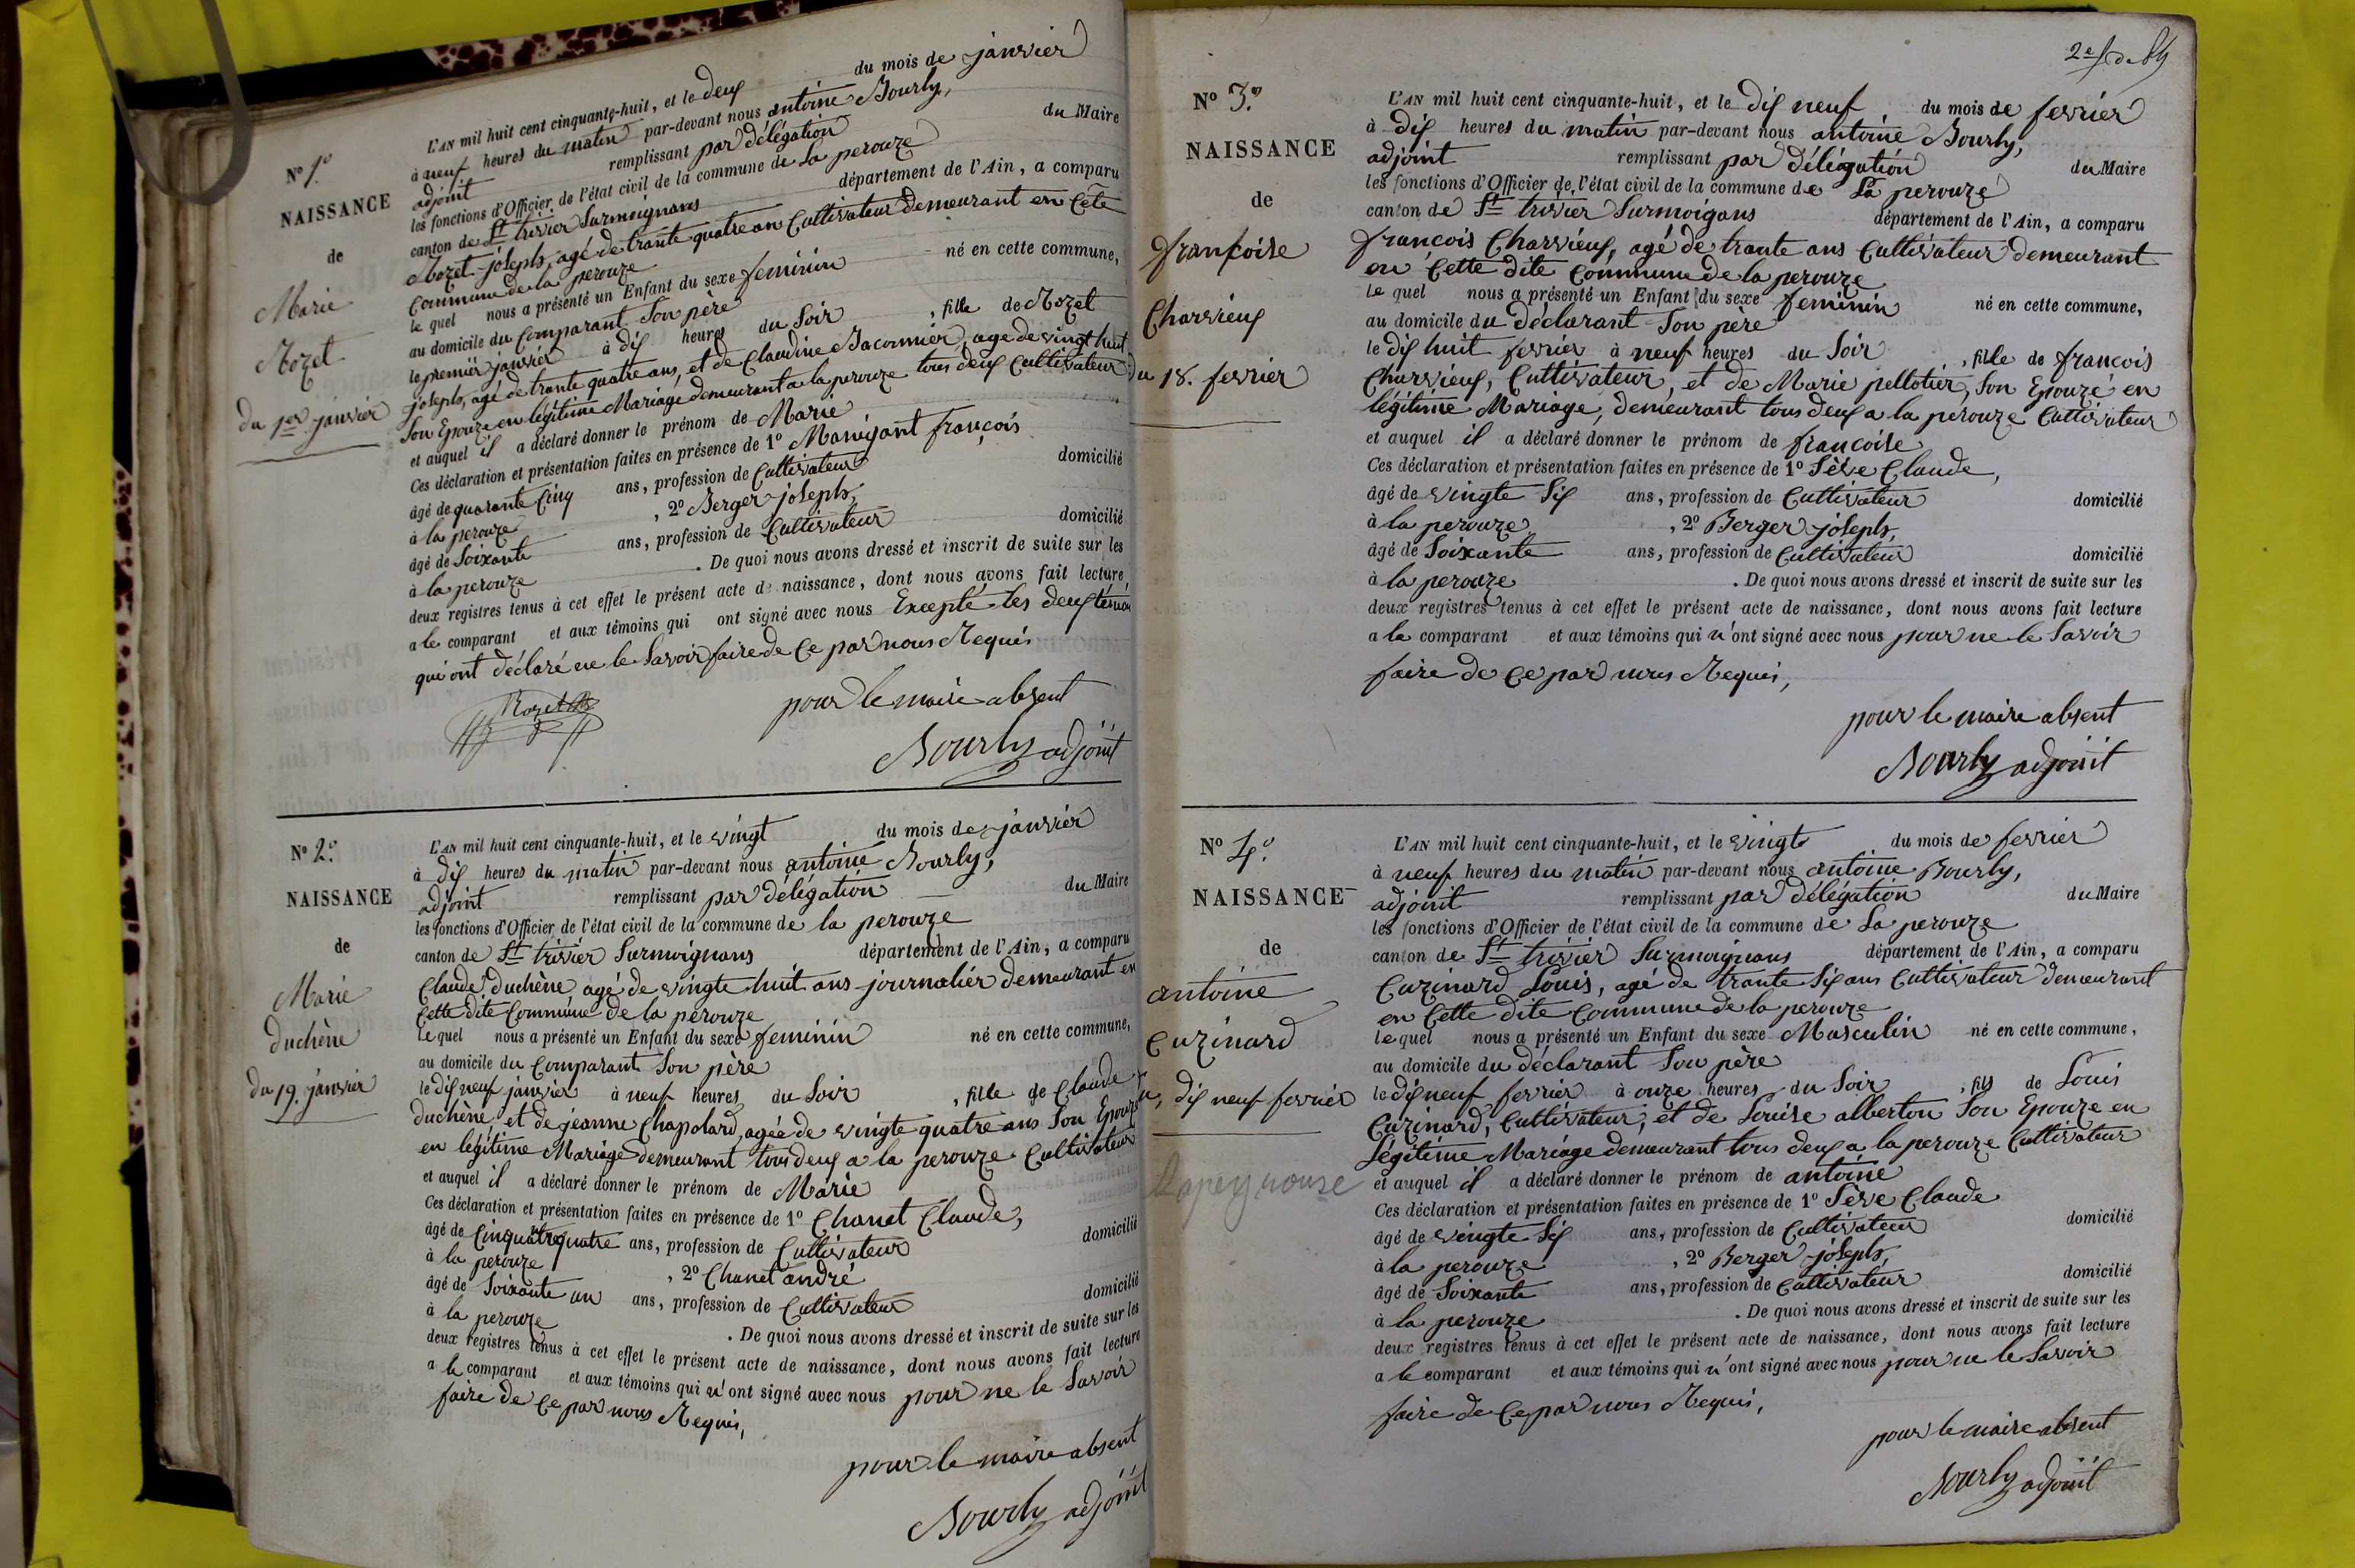 N° 1.°
NAISSANCE
de
Marie
Rozet
du 1er janvier
L'AN mil huit cent cinquante-huit, et le deux du mois de janvier
à neuf heures du matin par-devant nous antoine Bourly,
adjoint remplissant par délégation du Maire
les fonctions d'Officier de l'état civil de la commune de La perouze
canton de St trivier Surmoignans département de l'Ain, a comparu
Rozet joseph, agé de trante quatre an Cultivateur demeurant en Cete
Commune de la perouze
le quel nous a présenté un Enfant du sexe feminin né en cette commune,
au domicile du Comparant Son père
le premiér janvier à dix heures du Soir, fille de Rozet
joseph, agé de trante quatre ans, et de Claudine Bacomnier, agé de vingt huit
Son Epouze en légitime Mariage demeurant a la perouze tous deux Cultivateur
et auquel il a déclaré donner le prénom de Marie
Ces déclaration et présentation faites en présence de 1° Manigant françois
âgé de quarante Cinq ans, profession de Cultivateur domicilié
à la perouze, 2° Berger joseph,
âgé de Soixante ans, profession de Cultivateur domicilié
à la perouze. De quoi nous avons dressé et inscrit de suite sur les
deux registres tenus à cet effet le présent acte de naissance, dont nous avons fait lecture
a le comparant et aux témoins qui ont signé avec nous Excepté les deux temoin
qui ont déclaré ne le Savoir faire de Ce par nous Requis
Rozet
pour le maire absent
Bourly adjoint
N° 2.°
NAISSANCE
de
Marie
Duchène
du 19. janvier
L'AN mil huit cent cinquante-huit, et le vingt du mois de janvier
à dix heures du matin par-devant nous antoine Bourly,
adjoint remplissant par délégation du Maire
les fonctions d'Officier de l'état civil de la commune de la perouze
canton de St trivier Surmoignans département de l'Ain, a comparu
Claude Duchène agé de vingte huit ans journaliér demeurant en
Cette dite Commune de la perouze
le quel nous a présenté un Enfant du sexe feminin né en cette commune,
au domicile du Comparant Son père
le dix neuf janvier à neuf heures du Soir, fille de Claude
Duchène, et de jeanne Chapolard, agée de vingte quatre ans Son Epouze
en légitime Mariage demeurant tous deux a la perouze Cultivateur
et auquel il a déclaré donner le prénom de Marie
Ces déclaration et présentation faites en présence de 1° Chanet Claude,
âgé de Cinquante quatre ans, profession de Cultivateur domicilié
à la perouze, 2° Chanet andré
âgé de Soixante un ans, profession de Cultivateur domicilié
à la perouze. De quoi nous avons dressé et inscrit de suite sur les
deux registres tenus à cet effet le présent acte de naissance, dont nous avons fait lecture
a le comparant et aux témoins qui n'ont signé avec nous pour ne le Savoir
faire de Ce par nous Requis,
pour le maire absent
Bourly adjoint
N° 3.°
NAISSANCE
de
françoise
Charvieux
du 18. fevrier
L'AN mil huit cent cinquante-huit, et le dix neuf du mois de fevrier
à dix heures du matin par-devant nous antoine Bourly,
adjoint remplissant par délégation du Maire
les fonctions d'Officier de l'état civil de la commune de La perouze
canton de St trivier Surmoigans département de l'Ain, a comparu
françois Charvieux, agé de trante ans Cultivateur demeurant
en Cette dite Commune de la perouze
le quel nous a présenté un Enfant du sexe feminin né en cette commune,
au domicile du déclarant Son père
le dix huit fevrier à neuf heures du Soir, fille de francois
Charvieux, Cultivateur, et de Marie pellotier, Son Epouze en
légitime Mariage, demeurant tous deux a la perouze Cultivateur
et auquel il a déclaré donner le prénom de francoise
Ces déclaration et présentation faites en présence de 1° Sève Claude,
âgé de vingte Six ans, profession de Cultivateur domicilié
à la perouze, 2° Berger joseph,
âgé de Soixante ans, profession de Cultivateur domicilié
à la perouze. De quoi nous avons dressé et inscrit de suite sur les
deux registres tenus à cet effet le présent acte de naissance, dont nous avons fait lecture
a le comparant et aux témoins qui n'ont signé avec nous pour ne le Savoir
faire de Ce par nous Requis,
pour le maire absent
Bourly adjoint
N° 4.°
NAISSANCE
de
antoine
Cuzinard
du, dix neuf fevrier
Lapeyrouse
L'AN mil huit cent cinquante-huit, et le vingt du mois de fevrier
à neuf heures du matin par-devant nous antoine Bourly,
adjoint remplissant par délégation du Maire
les fonctions d'Officier de l'état civil de la commune de La perouze
canton de St trivier Surmoignans département de l'Ain, a comparu
Cuzinard Louis, agé de trante Six ans Cultivateur demeurant
en Cette dite Commune de la perouze
le quel nous a présenté un Enfant du sexe Masculin né en cette commune,
au domicile du déclarant Son père
le dix neuf fevrier à onze heures du Soir, fils de Louis
Cuzinard, Cultivateur, et de Louise alberton Son Epouze en
Légitime Mariage demeurant tous deux a la perouze Cultivateur
et auquel il a déclaré donner le prénom de antoine
Ces déclaration et présentation faites en présence de 1° Sève Claude
âgé de vingte Six ans, profession de Cultivateur domicilié
à la perouze, 2° Berger joseph,
âgé de Soixante ans, profession de Cultivateur domicilié
à la perouze. De quoi nous avons dressé et inscrit de suite sur les
deux registres tenus à cet effet le présent acte de naissance, dont nous avons fait lecture
a le comparant et aux témoins qui n'ont signé avec nous pour ne le Savoir
faire de Ce par nous Requis,
pour le maire absent
Bourly adjoint